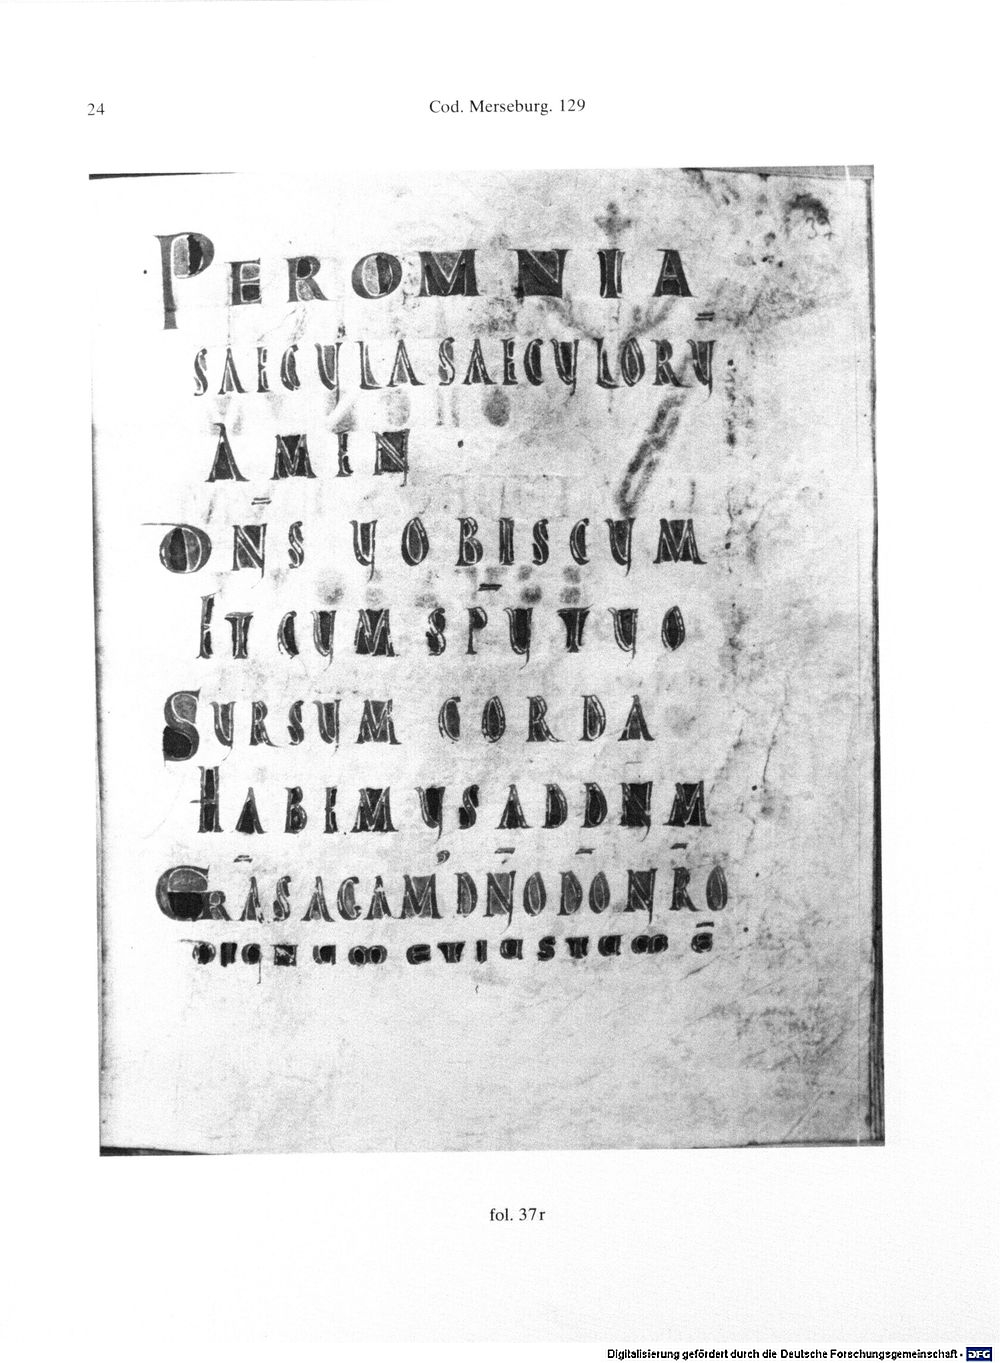 24
Cod. Merseburg. 129
37
PER OMNIA
SAECULA SAECULORŪ
AMEN
DN̄S UOBISCUM
ET CUM SP̄U TUO
SURSUM CORDA
HABEMUS AD DN̄M
GRĀS AGAM' DN̄O DŌ NR̄O
DIGNUM ET IUSTUM Ē
fol. 37r
Digitalisierung gefördert durch die Deutsche Forschungsgemeinschaft - DFG